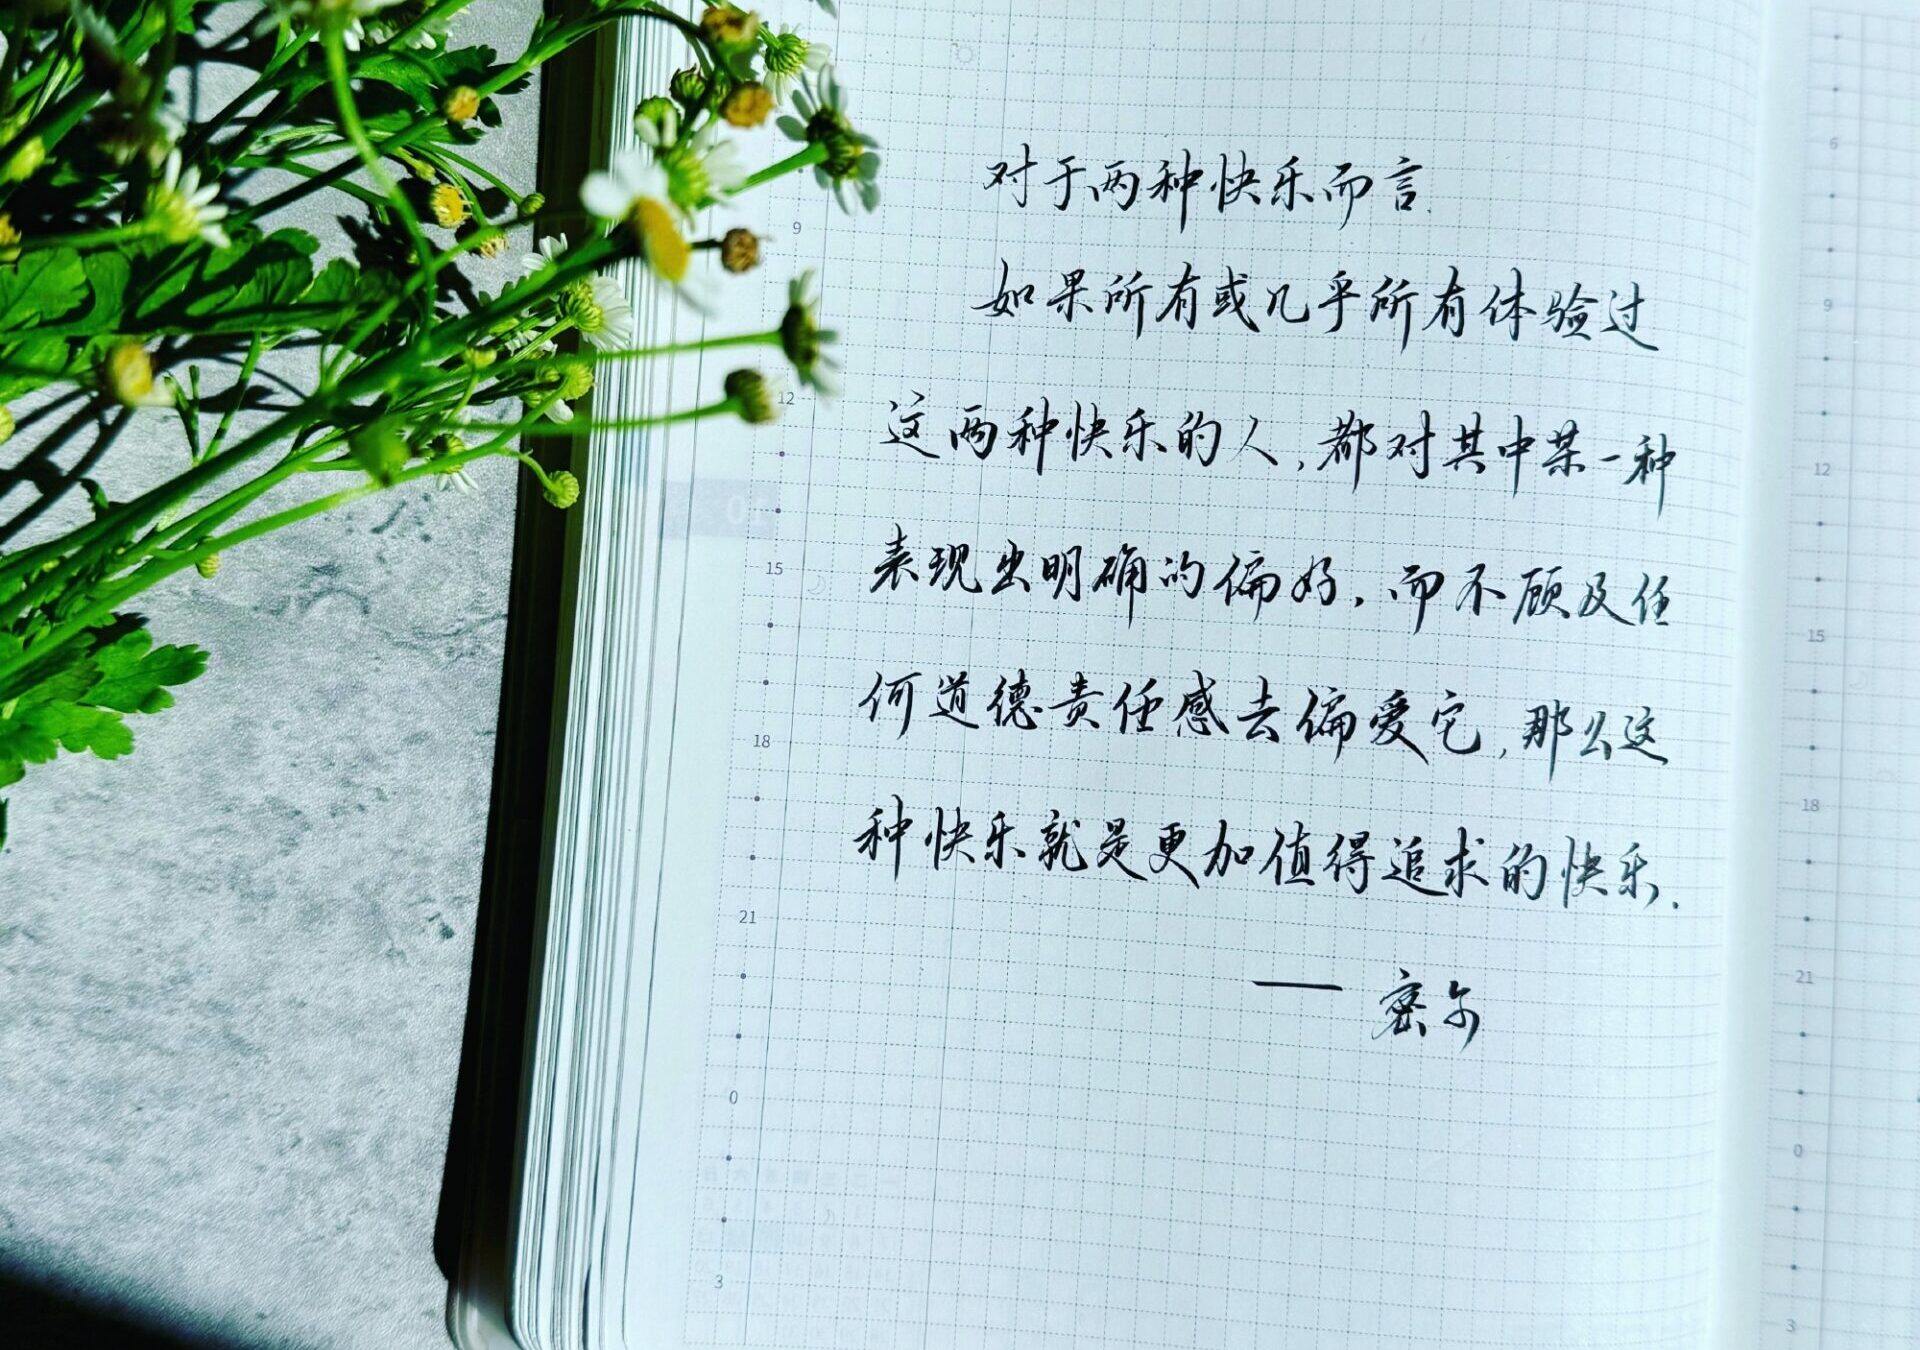 对于两种快乐而言，
如果所有或几乎所有体验过
这两种快乐的人，都对其中某一种
表现出明确的偏好，而不顾及任
何道德责任感去偏爱它，那么这
种快乐就是更加值得追求的快乐.
—— 密尔
9
12
15
18
21
0
3
6
9
12
15
18
21
0
3